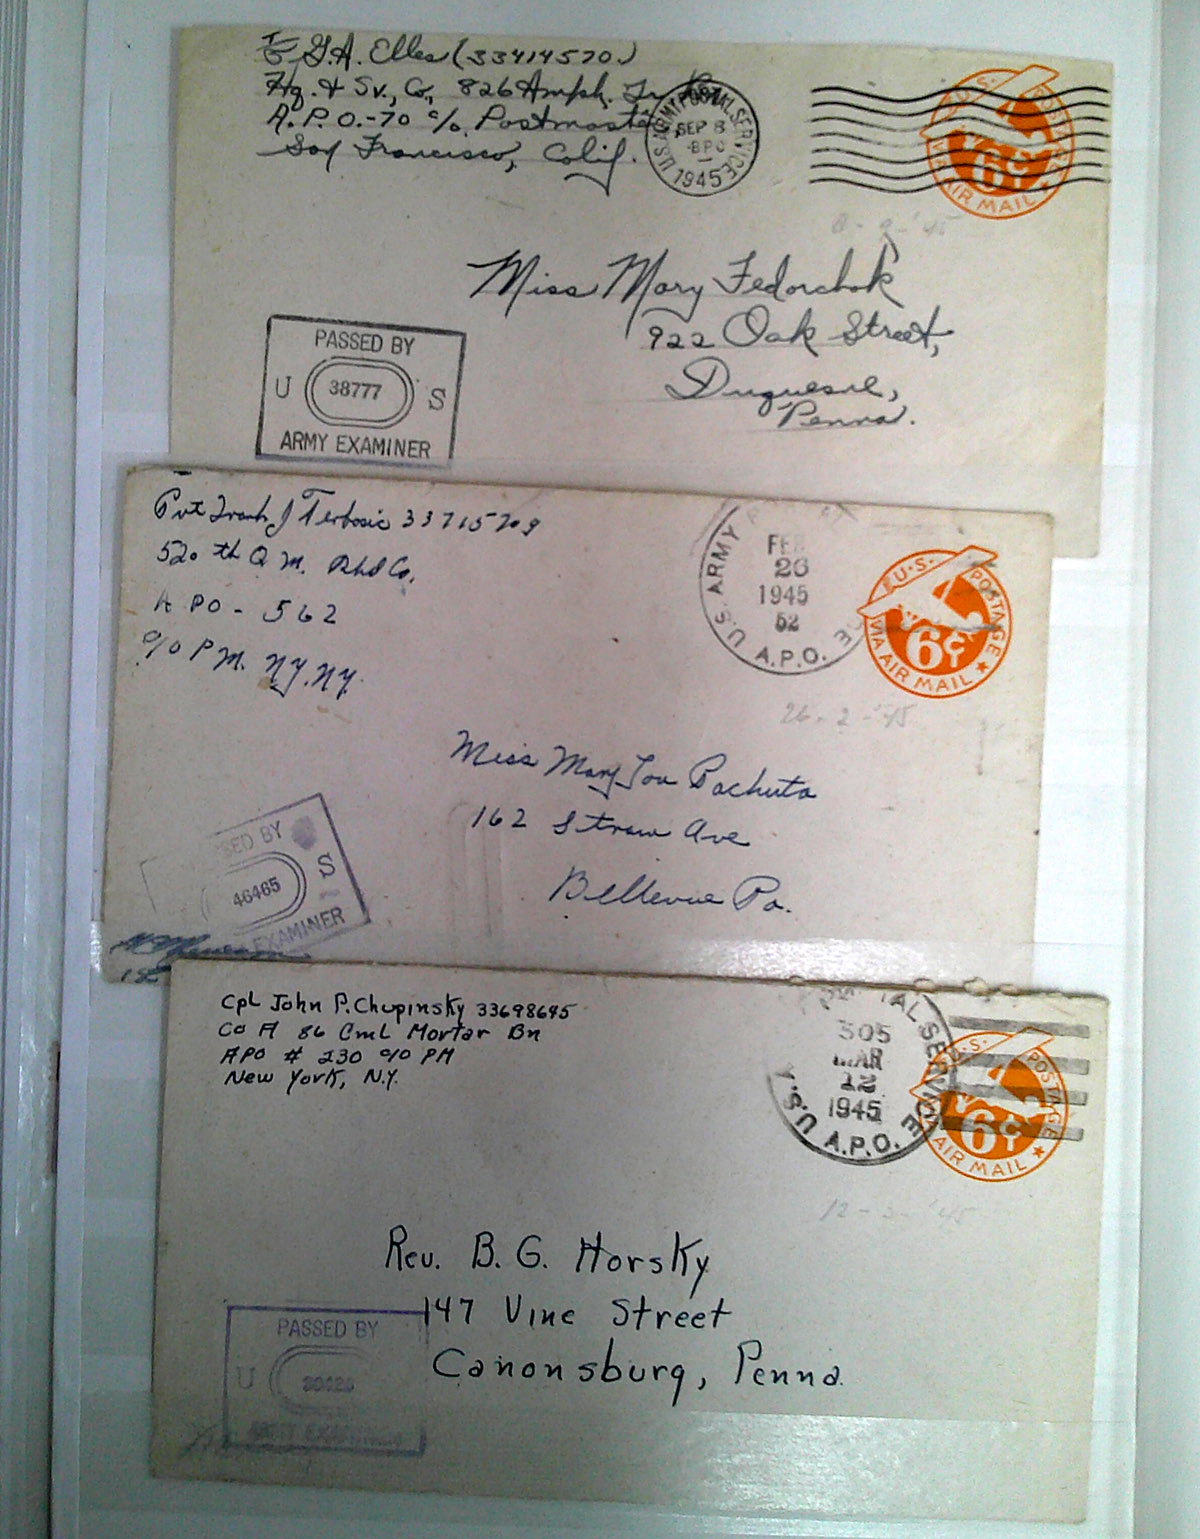 G.A. Elles (33414570)
Hq. & Sv., Co, 826 Amph. Tr
A.P.O.-70 c/o Postmaster,
San Francisco, Calif.
U.S. ARMY POSTAL SERVICE
SEP 8
BPO
1945
U.S. POSTAGE
6¢
VIA AIR MAIL
Miss Mary Fedorchak
922 Oak Street,
Duquesne,
Penna.
PASSED BY
U 38777 S
ARMY EXAMINER
Pvt Frank J Terbosic 33715709
520th Q M. Rhd Co.
A PO - 562
c/o P M. NY. NY.
U.S. ARMY
FEB
26
1945
52
A.P.O.
U.S. POSTAGE
6¢
VIA AIR MAIL
26-2-'45
Miss Mary Lou Pachuta
162 Straw Ave
Bellevue Pa.
SED BY
46465 S
EXAMINER
Cpl John P. Chupinsky 33698645
Co A 86 Cml Mortar Bn
APO # 230 c/o PM
New York, N.Y.
TAL SERVICE
305
MAR
12
1945
U.S.A
A.P.O.
U.S. POSTAGE
6¢
VIA AIR MAIL
12-3-'45
Rev. B. G. Horsky
147 Vine Street
Canonsburg, Penna.
PASSED BY
U
ARMY EXAMINER